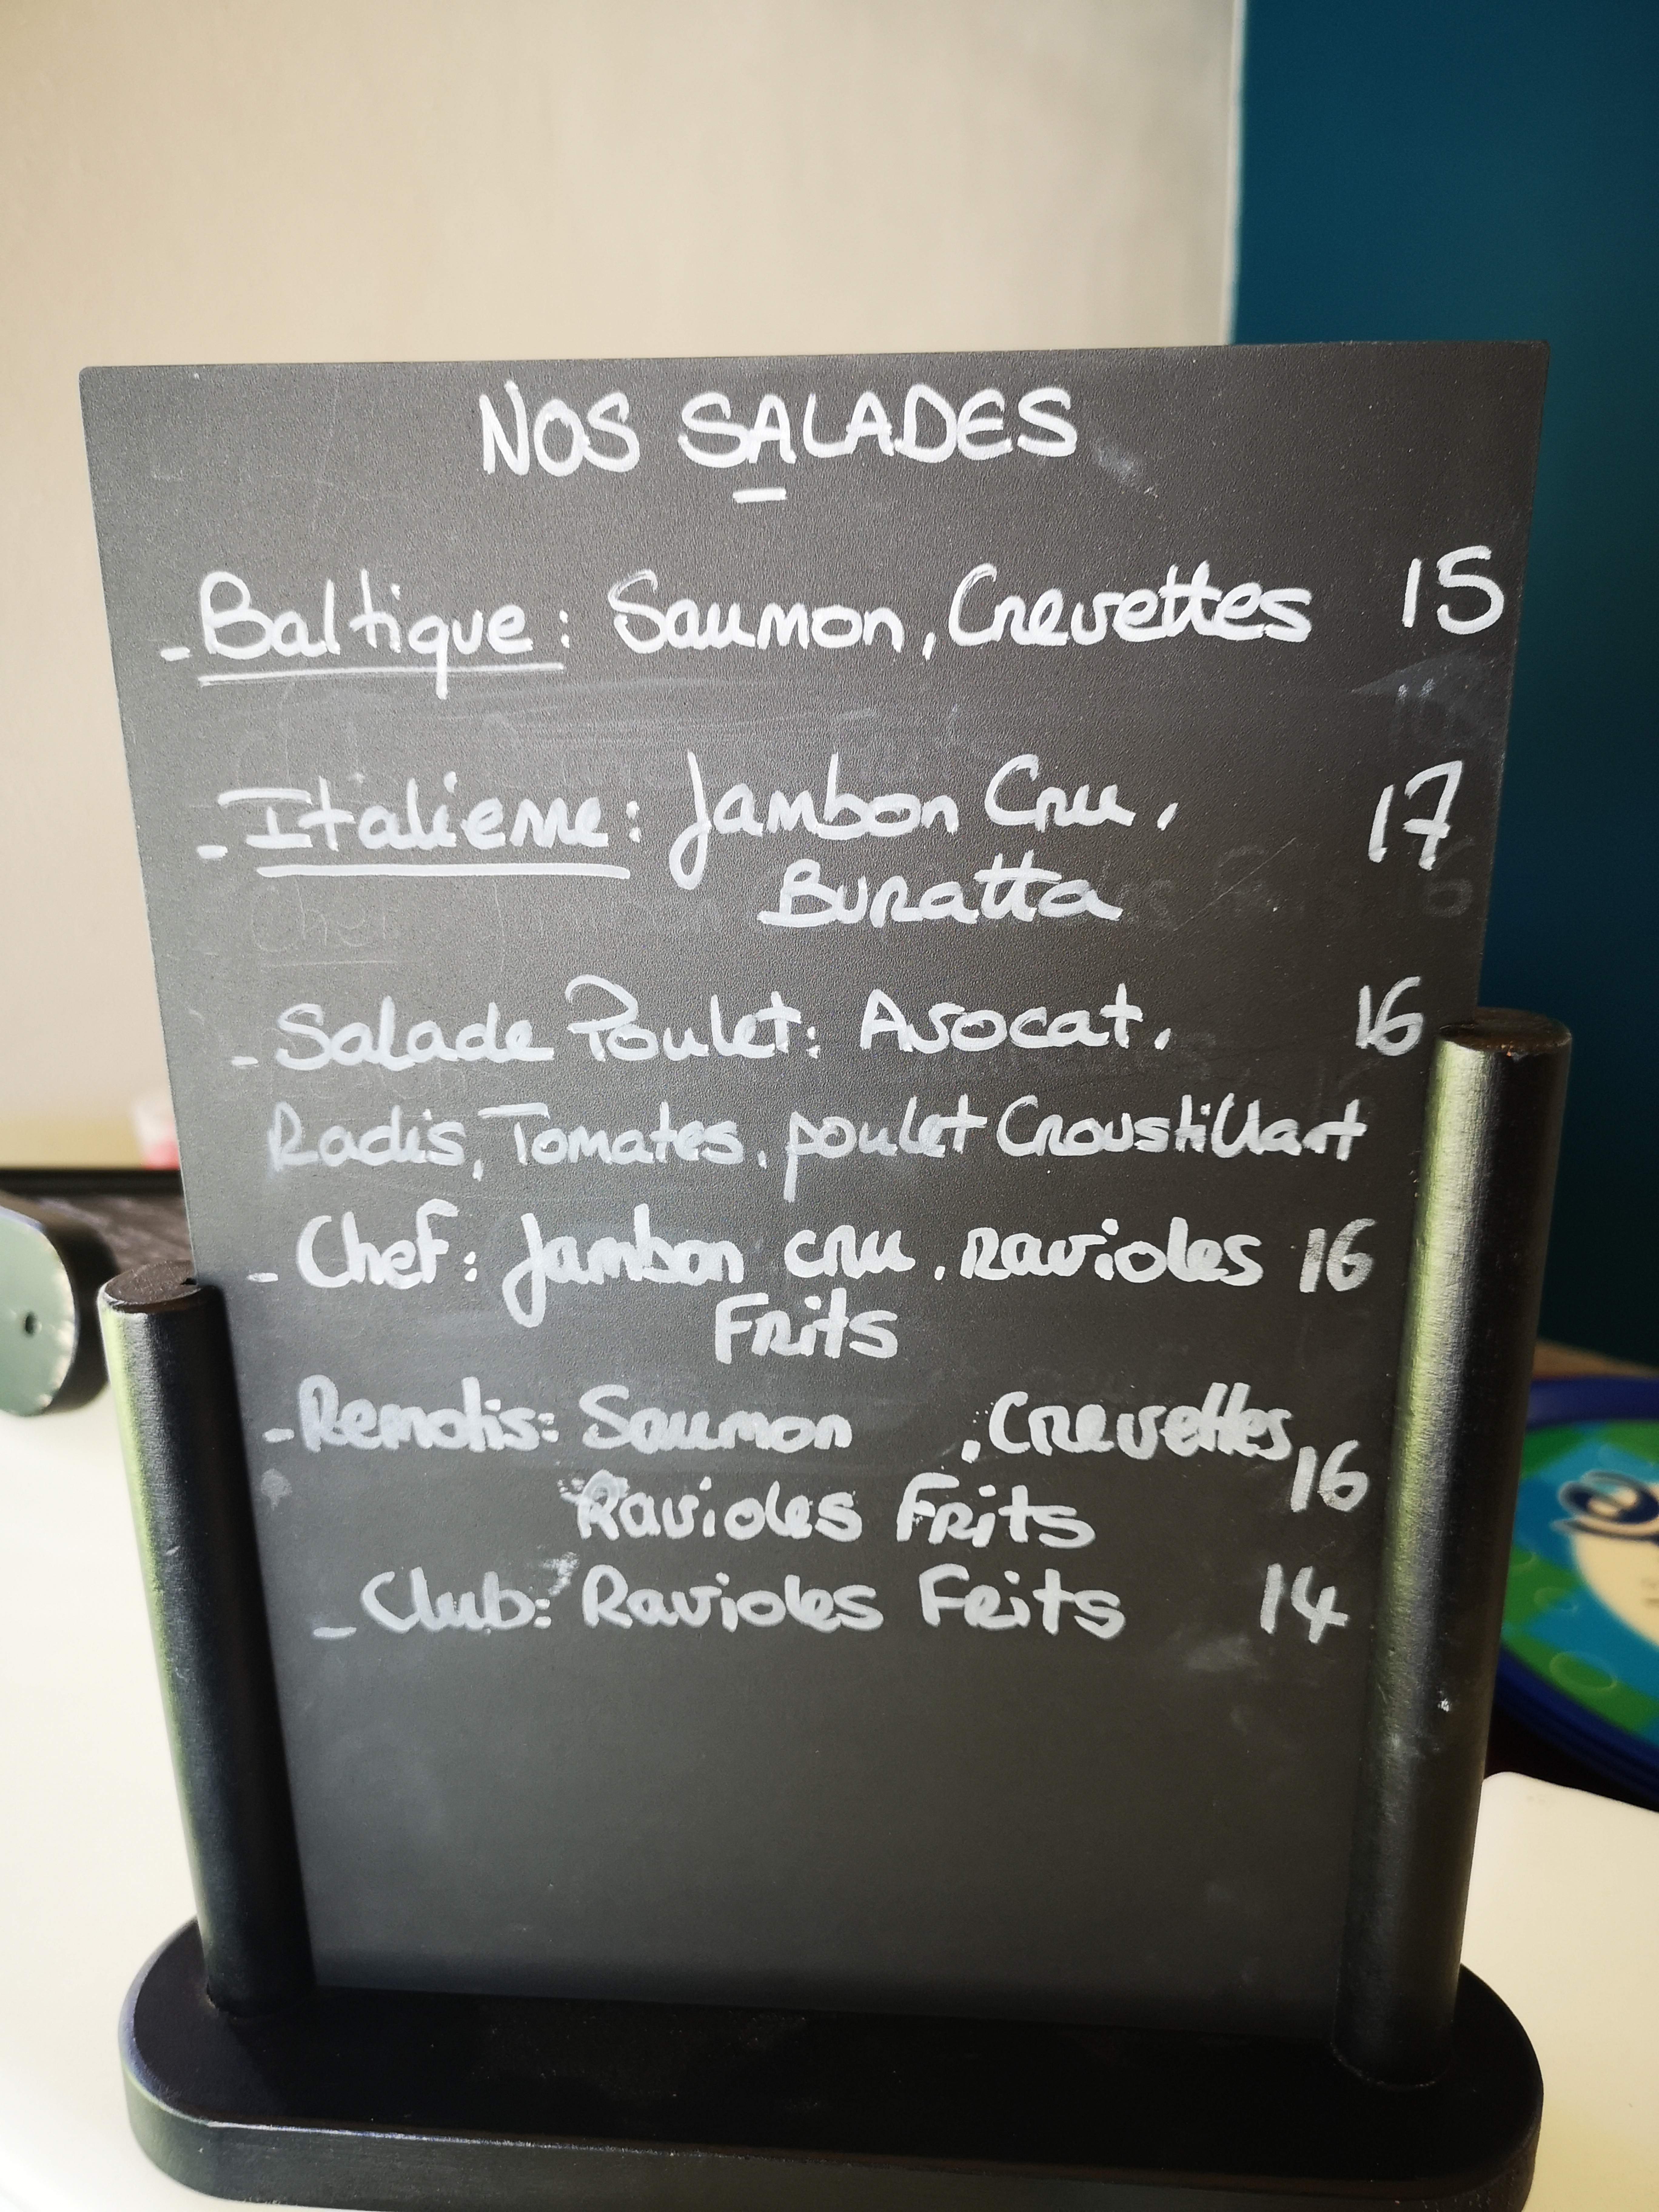 NOS SALADES
- Baltique : Saumon, Crevettes 15
- Italienne : Jambon Cru, 17
Buratta
- Salade Poulet : Avocat, 16
Radis, Tomates, poulet Croustillant
- Chef : Jambon cru, ravioles 16
Frits
- Remotis : Saumon , Crevettes
16
Ravioles Frits
- Club : Ravioles Frits 14